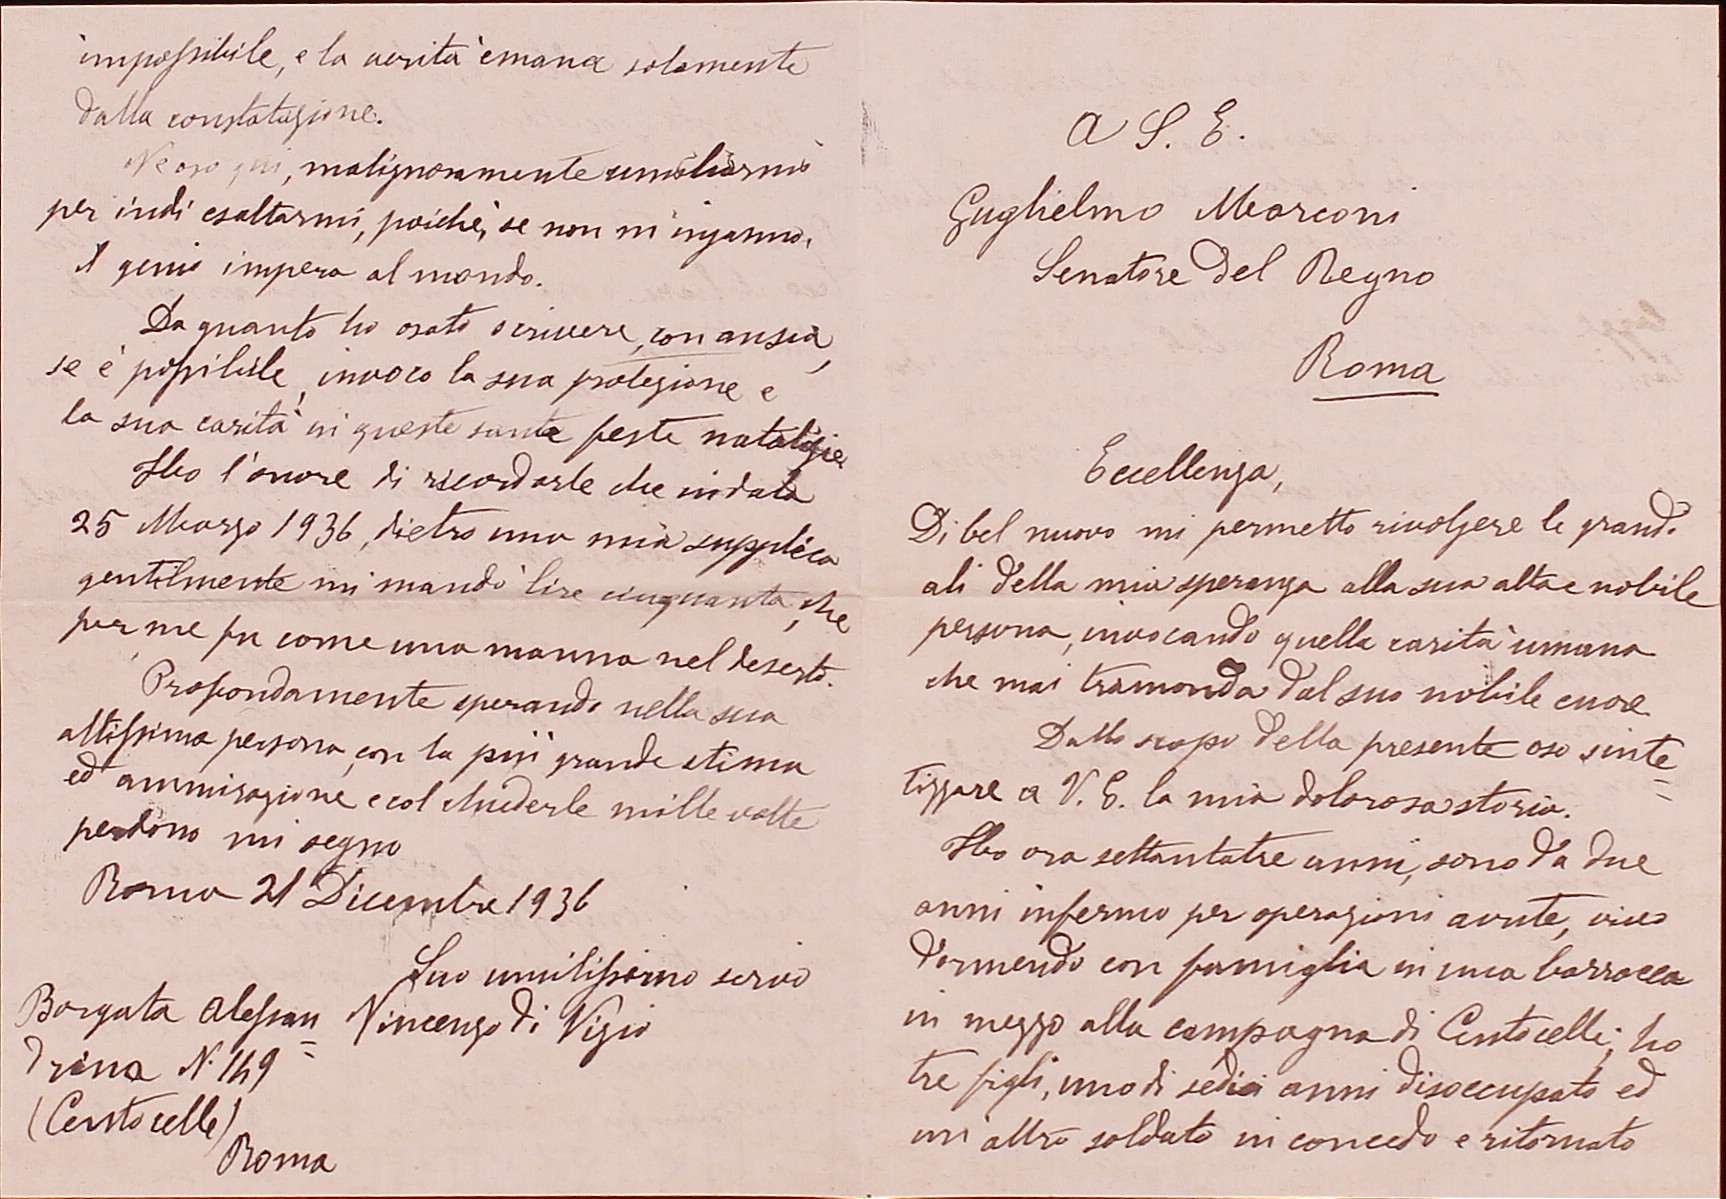 A S. E.
Guglielmo Marconi
Senatore del Regno
Roma
Eccellenza,
Di bel nuovo mi permetto rivolgere le grandi
ali della mia speranza alla sua alta e nobile
persona, invocando quella carità umana
che mai tramonda dal suo nobile cuore
Dallo scopo della presente oso sinte=
tizzare a V. E. la mia dolorosa storia.
Ho ora settantatre anni, sono da due
anni infermo per operazioni avute, vivo
dormendo con famiglia in una barracca
in mezzo alla campagna di Centocelle; ho
tre figli, uno di sedici anni disoccupato ed
un altro soldato in concedo e ritornato
impossibile, e la verità emana solamente
dalla constatazione.
Ne oso qui, malignoramente umiliarmi
per indi esaltarmi, poichè, se non m'inganno,
il genio impera al mondo.
Da quanto ho osato scrivere, con ansia,
se è possibile, invoco la sua protezione e
la sua carità in queste sante feste natalizie
Ho l'onore di ricordarle che in data
25 Marzo 1936, dietro una mia supplica
gentilmente mi mandò lire cinquanta, che
per me fu come una manna nel deserto.
Profondamente sperando nella sua
altissima persona, con la più grande stima
ed ammirazione e col chiederle mille volte
perdono mi segno
Roma 21 Dicembre 1936
Suo umilissimo servo
Vincenzo di Vizio
Borgata Alessan=
drina N. 149
(Centocelle)
Roma